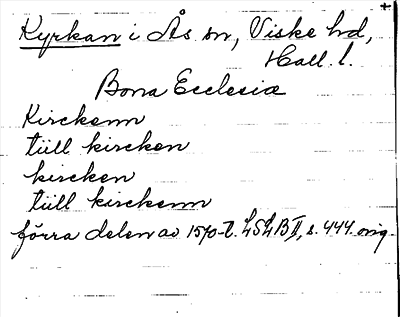 Kyrkan i Ås sn, Viske hd,
Hall. l.
Bona Ecclesia
Kirckenn
tüll kircken
kircken
tüll kirckenn
förra delen av 1570-t. LSLB II, s. 444. orig.